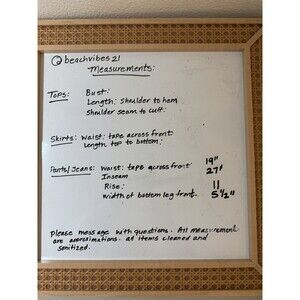 @beachvibes21
Measurements:
Tops: Bust:
Length: Shoulder to hem
Shoulder seam to cuff:
Skirts: Waist: tape across front
Length top to bottom:
Pants/Jeans: Waist: tape across front 19"
Inseam 27"
Rise: 11
Width of bottom leg front. 5 1/2"
Please message with questions. All measurement
are approximations. All items cleaned and
sanitized.